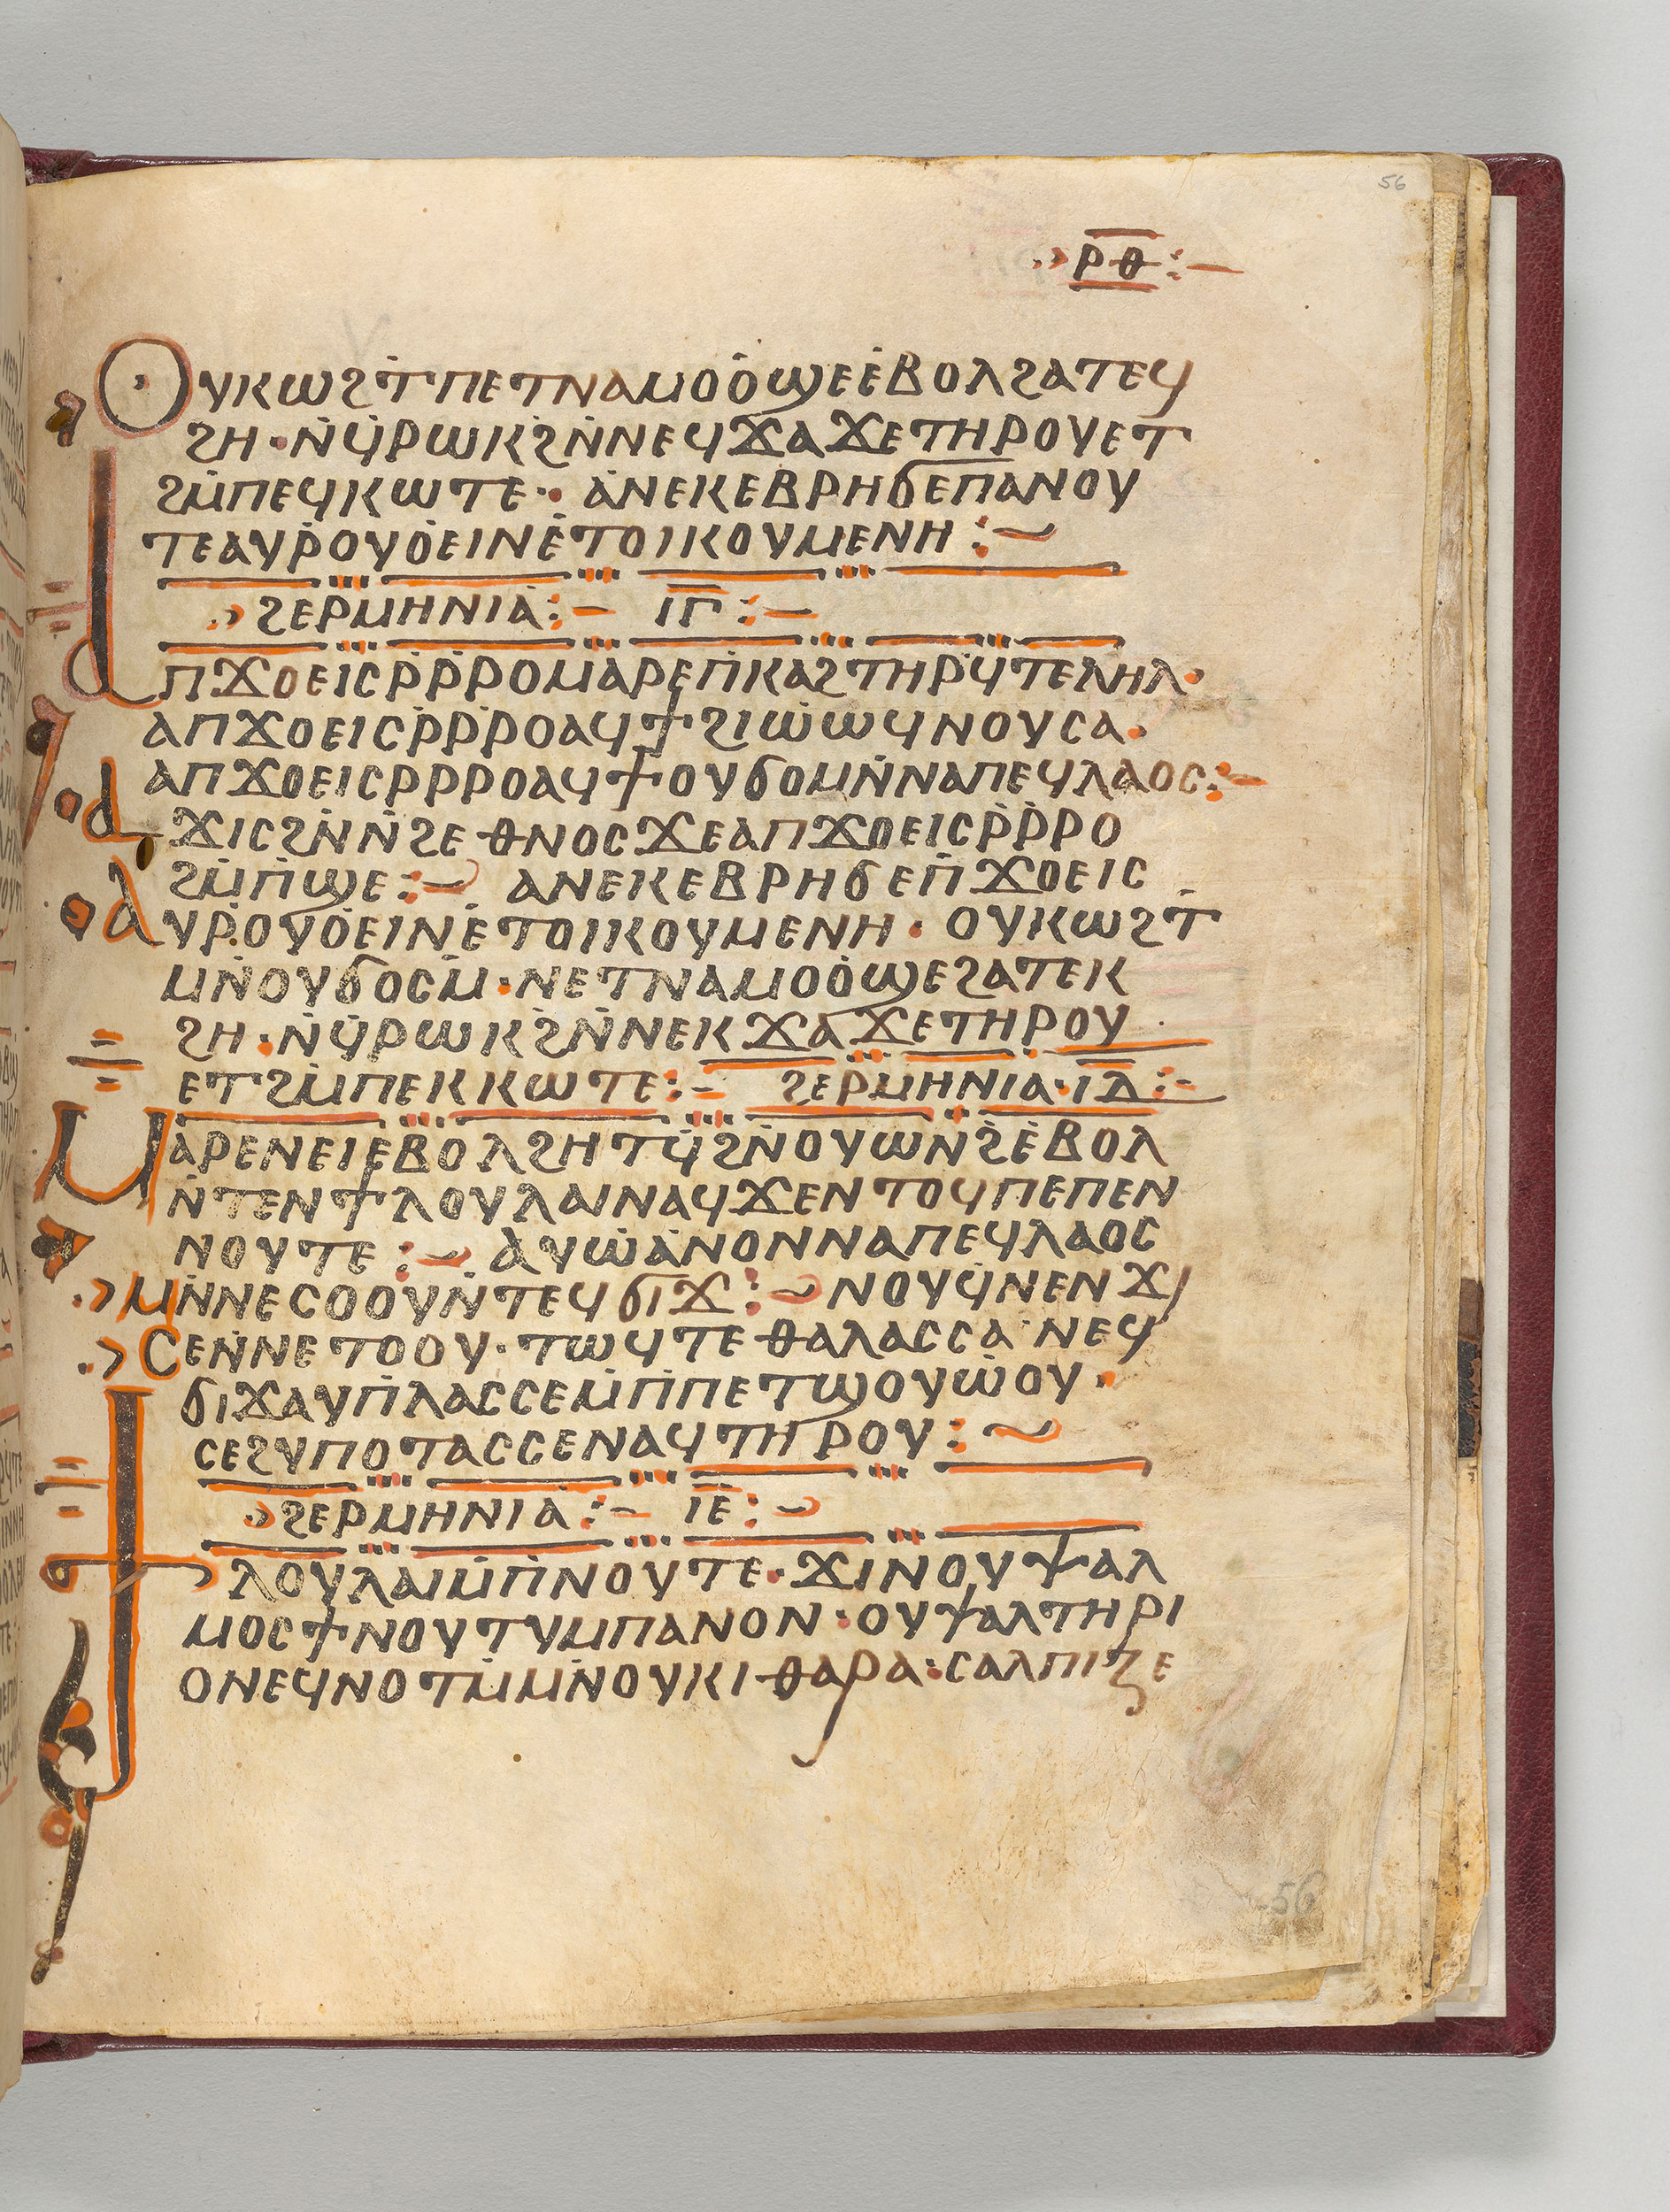 56
ⲣⲑ
ⲟⲩⲕⲱϩⲧⲡⲉⲧⲛⲁⲙⲟⲟϣⲉⲉⲃⲟⲗϩⲁⲧⲉϥ
ϩⲏ·ⲛ̇ϥ̇ⲣⲱⲕϩⲛ̇ⲛⲉϥϫⲁϫⲉⲧⲏⲣⲟⲩⲉⲧ
ϩⲙ̇ⲡⲉϥⲕⲱⲧⲉ· ⲁⲛⲉⲕⲉⲃⲣⲏϭⲉⲡⲁⲛⲟⲩ
ⲧⲉⲁⲩⲣ̇ⲟⲩⲟ̇ⲉⲓⲛⲉ̇ⲧⲟⲓⲕⲟⲩⲙⲉⲛⲏ:~
ϩⲉⲣⲙⲏⲛⲓⲁ:– ⲓ̅ⲅ̅:–
ⲁⲡϫⲟⲉⲓⲥⲣ̇ⲣ̇ⲣⲟⲙⲁⲣⲉⲡ̇ⲕⲁϩⲧⲏⲣϥ̇ⲧⲉⲗⲏⲗ·
ⲁⲡϫⲟⲉⲓⲥⲣ̇ⲣ̇ⲣⲟⲁϥϯϩⲓⲱ̇ⲱϥⲛⲟⲩⲥⲁ·
ⲁⲡϫⲟⲉⲓⲥⲣⲣⲣⲟⲁϥϯⲟⲩϭⲟⲙⲛ̇ⲛⲁⲡⲉϥⲗⲁⲟⲥ:–
ⲁϫⲓⲥϩⲛ̇ⲛ̇ϩⲉⲑⲛⲟⲥϫⲉⲁⲡϫⲟⲉⲓⲥⲣ̇ⲣ̇ⲣⲟ
ϩⲙ̇ⲡ̇ϣⲉ:~ ⲁⲛⲉⲕⲉⲃⲣⲏϭⲉⲡ̇ϫⲟⲉⲓⲥ
ⲁⲩⲣ̇ⲟⲩⲟ̇ⲉⲓⲛⲉ̇ⲧⲟⲓⲕⲟⲩⲙⲉⲛⲏ· ⲟⲩⲕⲱϩⲧ
ⲙⲛ̇ⲟⲩϭⲟⲥⲙ̇·ⲛⲉⲧⲛⲁⲙⲟⲟ̇ϣⲉϩⲁⲧⲉⲕ
ϩⲏ·ⲛ̇ϥ̇ⲣⲱⲕϩ̇ⲛ̇ⲛⲉⲕϫⲁϫⲉⲧⲏⲣⲟⲩ
ⲉⲧϩⲙ̇ⲡⲉⲕⲕⲱⲧⲉ:– ϩⲉⲣⲙⲏⲛⲓⲁ·ⲓ̅ⲇ̅:–
ⲙⲁⲣⲉⲛⲉⲓⲉⲃⲟⲗϩⲏⲧϥ̇ϩⲛ̇ⲟⲩⲱⲛ̇ϩⲉ̇ⲃⲟⲗ
ⲛ̇ⲧⲉⲛϯⲗⲟⲩⲗⲁⲓⲛⲁϥϫⲉⲛⲧⲟϥⲡⲉⲡⲉⲛ
ⲛⲟⲩⲧⲉ:~ ⲁⲩⲱ̇ⲁ̇ⲛⲟⲛⲛⲁⲡⲉϥⲗⲁⲟⲥ
ⲙⲛ̇ⲛⲉⲥⲟⲟⲩⲛ̇ⲧⲉϥϭⲓϫ:~ⲛⲟⲩϥ̇ⲛⲉⲛϫⲓ
ⲥⲉⲛ̇ⲛⲉⲧⲟⲟⲩ·ⲧⲱϥⲧⲉⲑⲁⲗⲁⲥⲥⲁ·ⲛⲉϥ
ϭⲓϫⲁⲩⲡ̇ⲗⲁⲥⲥⲉⲙ̇ⲡ̇ⲡⲉⲧϣⲟⲩⲱ̇ⲟⲩ·
ⲥⲉϩⲩⲡⲟⲧⲁⲥⲥⲉⲛⲁϥⲧⲏⲣⲟⲩ:~
ϩⲉⲣⲙⲏⲛⲓⲁ:– ⲓ̅ⲉ̅:~
ϯⲗⲟⲩⲗⲁⲓⲙ̇ⲡ̇ⲛⲟⲩⲧⲉ·ϫⲓⲛⲟⲩⲯⲁⲗ
ⲙⲟⲥϯⲛⲟⲩⲧⲩⲙⲡⲁⲛⲟⲛ·ⲟⲩⲯⲁⲗⲧⲏⲣⲓ
ⲟⲛⲉϥⲛⲟⲧⲙ̇ⲙⲛ̇ⲟⲩⲕⲓⲑⲁⲣⲁ:ⲥⲁⲗⲡⲓⲍⲉ
56